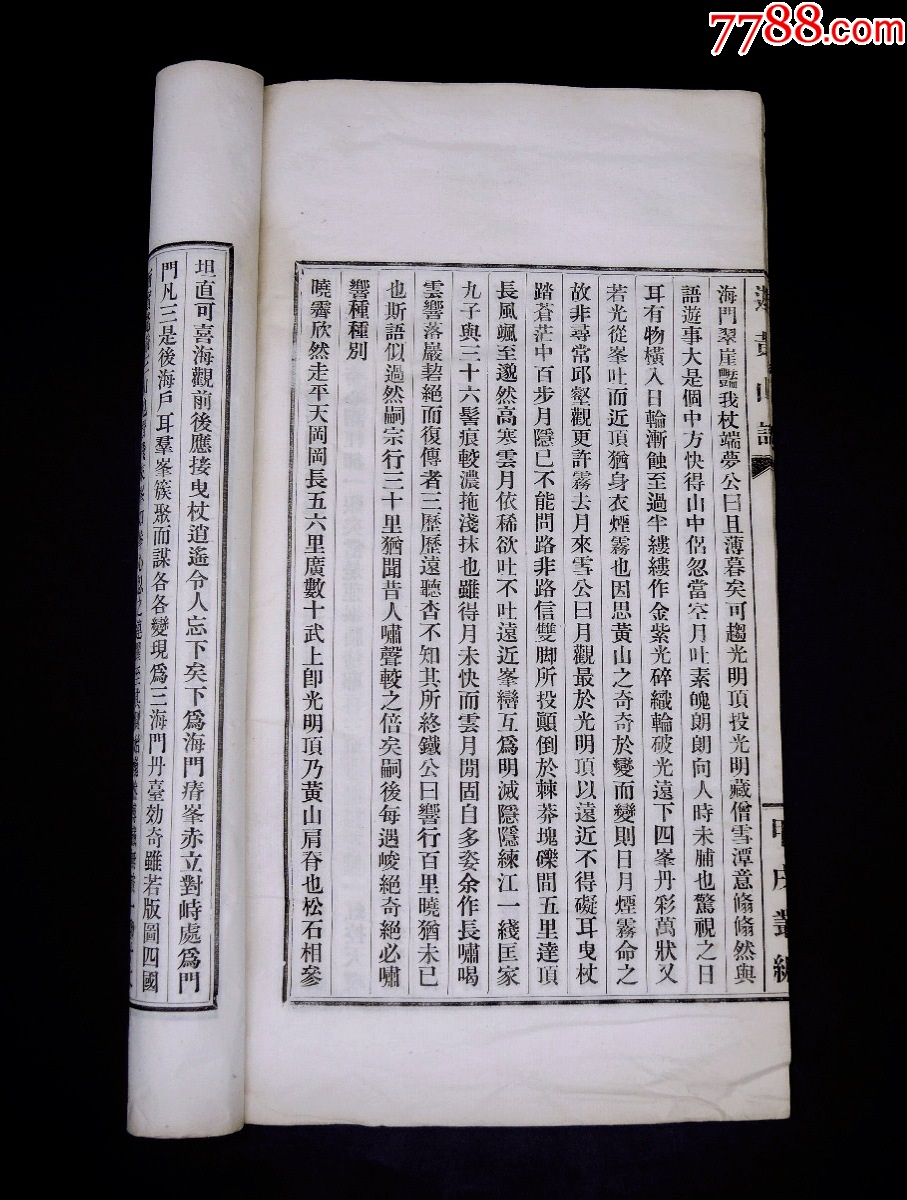 7788.com
遊黃山記
甲戌叢編
海門翠崖豔我杖端夢公曰且薄暮矣可趨光明頂投光明藏僧雪潭意翛翛然與
語遊事大是個中方快得山中侶忽當空月吐素魄朗朗向人時未脯也驚視之日
耳有物橫入日輪漸蝕至過半縷縷作金紫光碎織輪破光遠下四峯丹彩萬狀又
若光從峯吐而近頂猶身衣煙霧也因思黃山之奇奇於變而變則日月煙霧命之
故非尋常邱壑觀更許霧去月來雪公曰月觀最於光明頂以遠近不得礙耳曳杖
踏蒼茫中百步月隱已不能問路非路信雙脚所投顚倒於棘莽塊礫間五里達頂
長風颯至邈然高寒雲月依稀欲吐不吐遠近峯巒互爲明滅隱隱練江一綫匡家
九子與三十六髻痕較濃拖淺抹也雖得月未快而雲月閒固自多姿余作長嘯喝
雲響落巖砉絕而復傳者三歷歷遠聽杳不知其所終鐵公曰響行百里曉猶未已
也斯語似過然嗣宗行三十里猶聞昔人嘯聲較之倍矣嗣後每遇峻絕奇絕必嘯
響種種別
曉霽欣然走平天岡岡長五六里廣數十武上卽光明頂乃黃山肩脊也松石相參
坦直可喜海觀前後應接曳杖逍遙令人忘下矣下爲海門瘠峯赤立對峙處爲門
門凡三是後海戶耳羣峯簇聚而謀各各變現爲三海門丹臺効奇雖若版圖四國